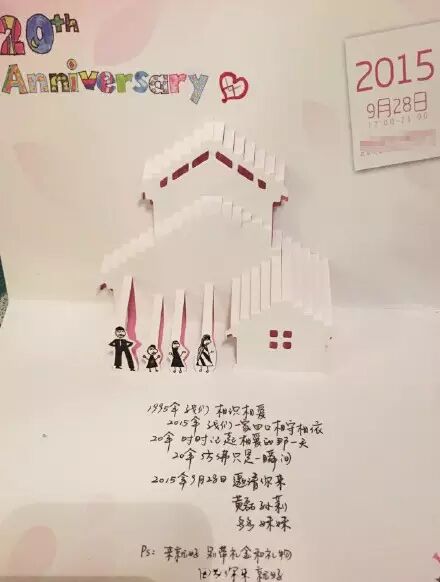 20th
Anniversary
2015
9月28日
17:00-21:00
1995年 我们 相识相爱
2015年 我们一家四口相守相依
20年 时时记起相爱的那一天
20年 仿佛只是一瞬间
2015年9月28日 邀请你来
黄磊 孙莉
多多 妹妹
Ps: 来就好 别带礼金和礼物